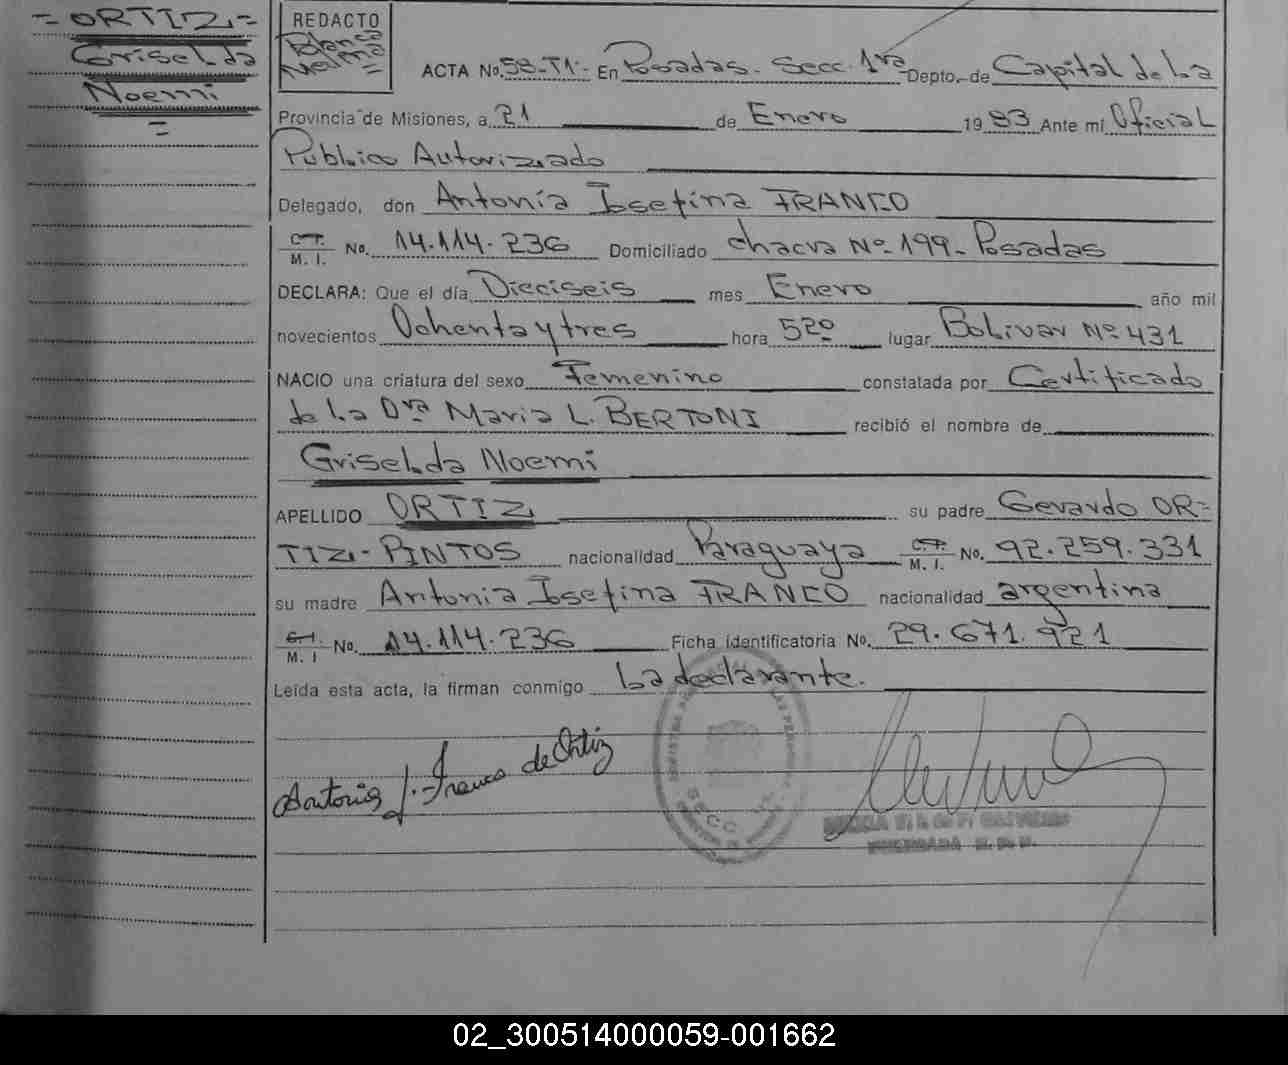 = ORTIZ =
Griselda
Noemi
=
REDACTO
Blanca
Nelma
=
ACTA No. 58-T1- En Posadas. Secc. 1ra Depto. de Capital de la
Provincia de Misiones, a 21 de Enero 19 83 Ante mi Oficial
Publico Autorizado
Delegado, don Antonia Josefina FRANCO
C. I. M. I. No. 14.114.236 Domiciliado chacra Nº 199- Posadas
DECLARA: Que el día Dieciseis mes Enero año mil
novecientos Ochenta y tres hora 520 lugar Bolivar Nº 431
NACIO una criatura del sexo Femenino constatada por Certificado
de la Dra Maria L. BERTONI recibió el nombre de
Griselda Noemi
APELLIDO ORTIZ su padre Gerardo OR=
TIZ- PINTOS nacionalidad Paraguaya C. I. M. I. No. 92.259.331
su madre Antonia Josefina FRANCO nacionalidad argentina
C. I. M. I No. 14.114.236 Ficha Identificatoria No. 29.671.921
Leída esta acta, la firman conmigo La declarante.
Antonia J. Franco de Ortiz
SECC.
02_300514000059-001662